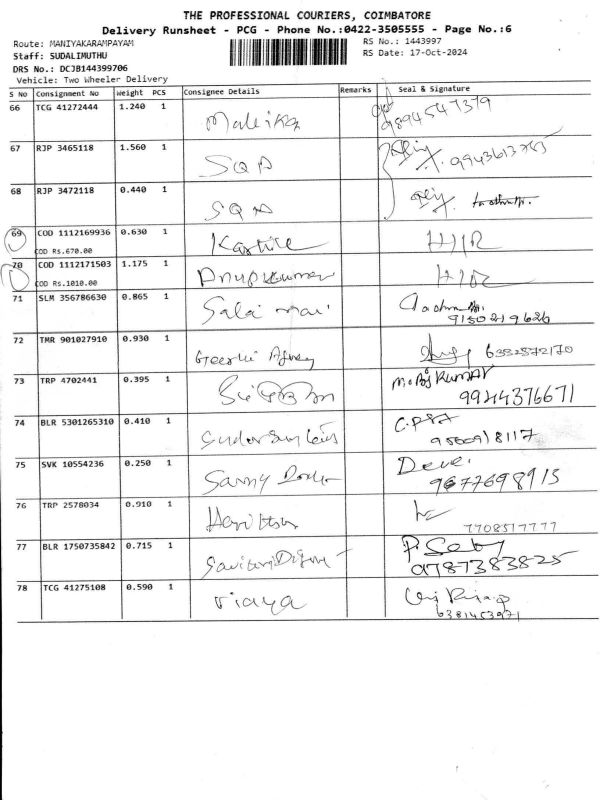 THE PROFESSIONAL COURIERS, COIMBATORE
Delivery Runsheet - PCG - Phone No.:0422-3505555 - Page No.:6
Route: MANIYAKARAMPAYAM
RS No.: 1443997
Staff: SUDALIMUTHU
RS Date: 17-Oct-2024
DRS No.: DCJB144399706
Vehicle: Two Wheeler Delivery
S No Consignment No Weight PCS Consignee Details Remarks Seal & Signature
66 TCG 41272444 1.240 1 Malika 9894547379
67 RJP 3465118 1.560 1 SQA 9943613745
68 RJP 3472118 0.440 1 SQA
69 COD 1112169936 0.630 1 H/R
COD Rs.670.00
70 COD 1112171503 1.175 1 Anup Kumar H/R
COD Rs.1010.00
71 SLM 356786630 0.865 1 Salai Mari
9150219626
72 TMR 901027910 0.930 1 6382872170
73 TRP 4702441 0.395 1 KUMAR
9944376671
74 BLR 5301265310 0.410 1
75 SVK 10554236 0.250 1 Deve.
9677698915
76 TRP 2578034 0.910 1
7708517777
77 BLR 1750735842 0.715 1
9787383825
78 TCG 41275108 0.590 1 Viaya
6381453971